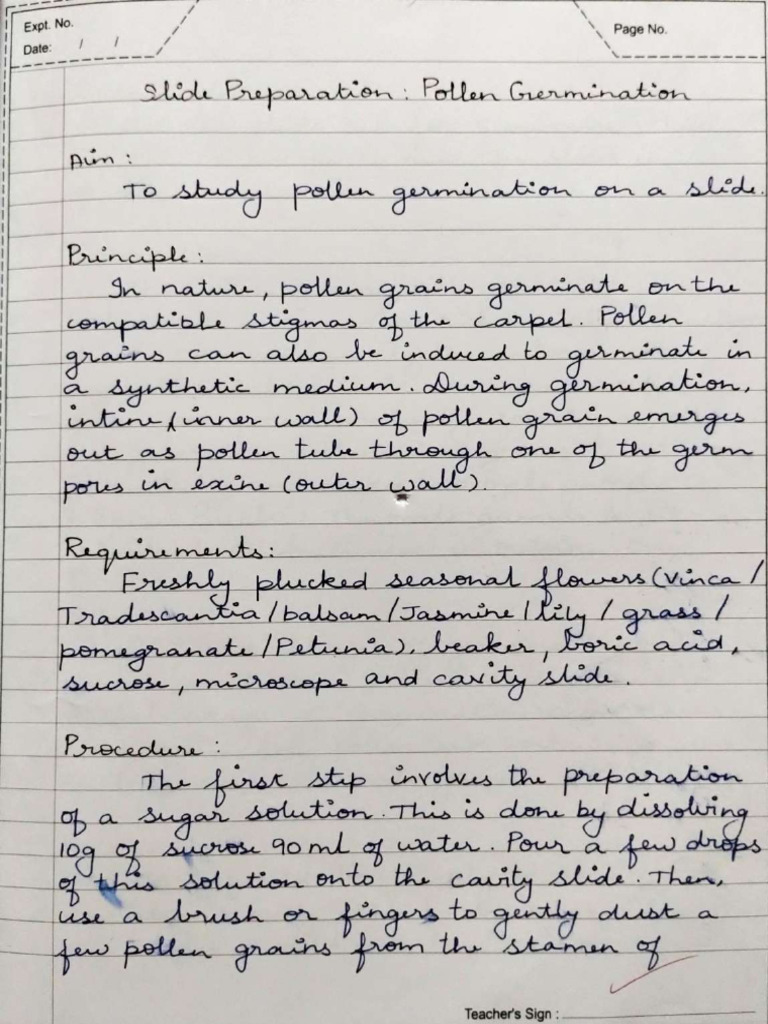 Expt. No.
Date: / /
Page No.
Slide Preparation: Pollen Germination
Aim:
To study pollen germination on a slide.
Principle:
In nature, pollen grains germinate on the
compatible stigmas of the carpel. Pollen
grains can also be induced to germinate in
a synthetic medium. During germination,
intine (inner wall) of pollen grain emerges
out as pollen tube through one of the germ
pores in exine (outer wall).
Requirements:
Freshly plucked seasonal flowers (Vinca /
Tradescantia / balsam / Jasmine / lily / grass /
pomegranate / Petunia), beaker, boric acid,
sucrose, microscope and cavity slide.
Procedure:
The first step involves the preparation
of a sugar solution. This is done by dissolving
10g of sucrose 90 ml of water. Pour a few drops
of this solution onto the cavity slide. Then,
use a brush or fingers to gently dust a
few pollen grains from the stamen of
Teacher's Sign :